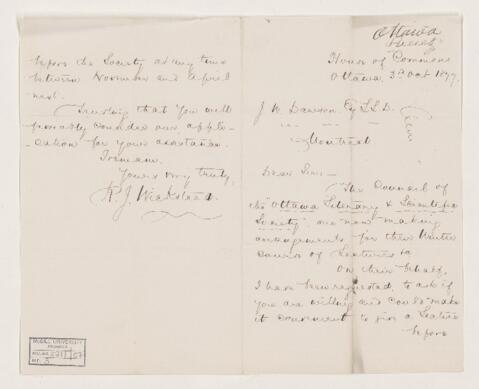 Ottawa
Society
House of Commons
Ottawa 3d Oct 1877.
J W Dawson Esq LLD.
Montreal
Dear Sir:-
The Council of
the "Ottawa Literary & Scientific
Society" are now making
arrangements for their Winter
Course of Lectures &
On their behalf,
I have been requested, to ask if
you are willing and could make
it convenient to give a Lecture
before
before the Society at any time
between November and April
next.
Trusting that you will
favorably consider our appli-
cation for your assistance.
I remain.
Yours very truly,
R. J. Wicksteed.
McGILL UNIVERSITY
ARCHIVES